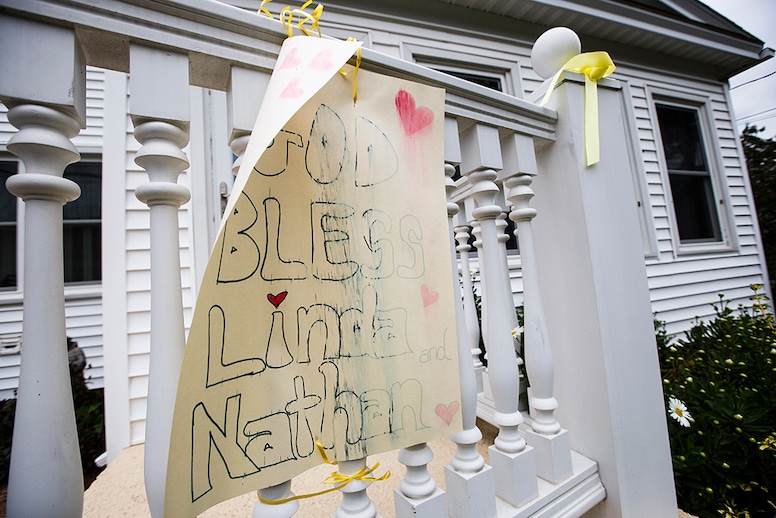 GOD
BLESS
Linda and
Nathan